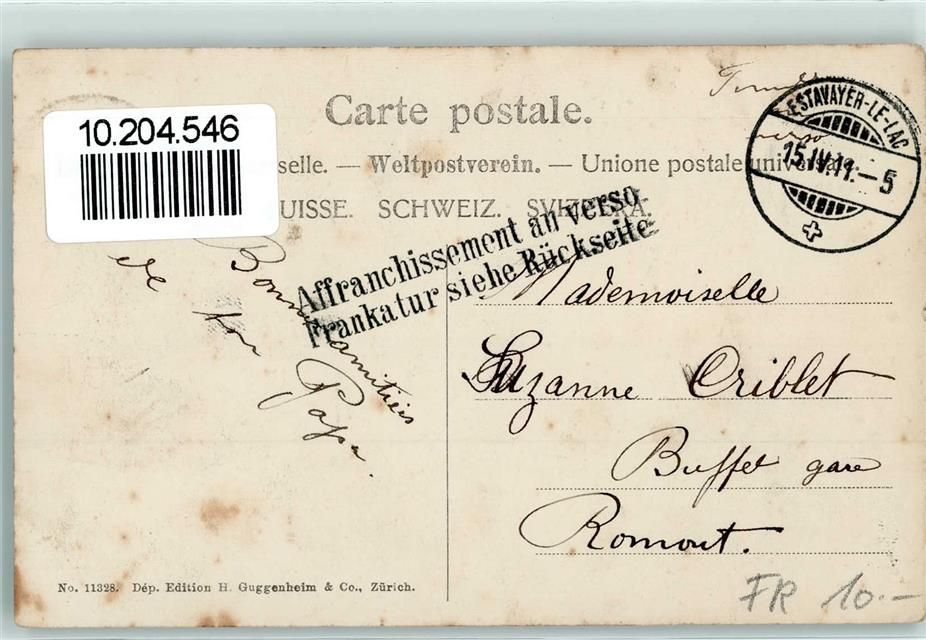 Carte postale.
10.204.546
selle. — Weltpostverein. — Unione postale universale.
UISSE. SCHWEIZ. SVIZZERA.
ESTAVAYER-LE-LAC
15.IV.11.–5
Affranchissement au verso
Frankatur siehe Rückseite
Bonnes amitiés
de ton Papa.
Mademoiselle
Suzanne Criblet
Buffet gare
Romont.
No. 11328. Dép. Edition H. Guggenheim & Co., Zürich.
FR 10.–